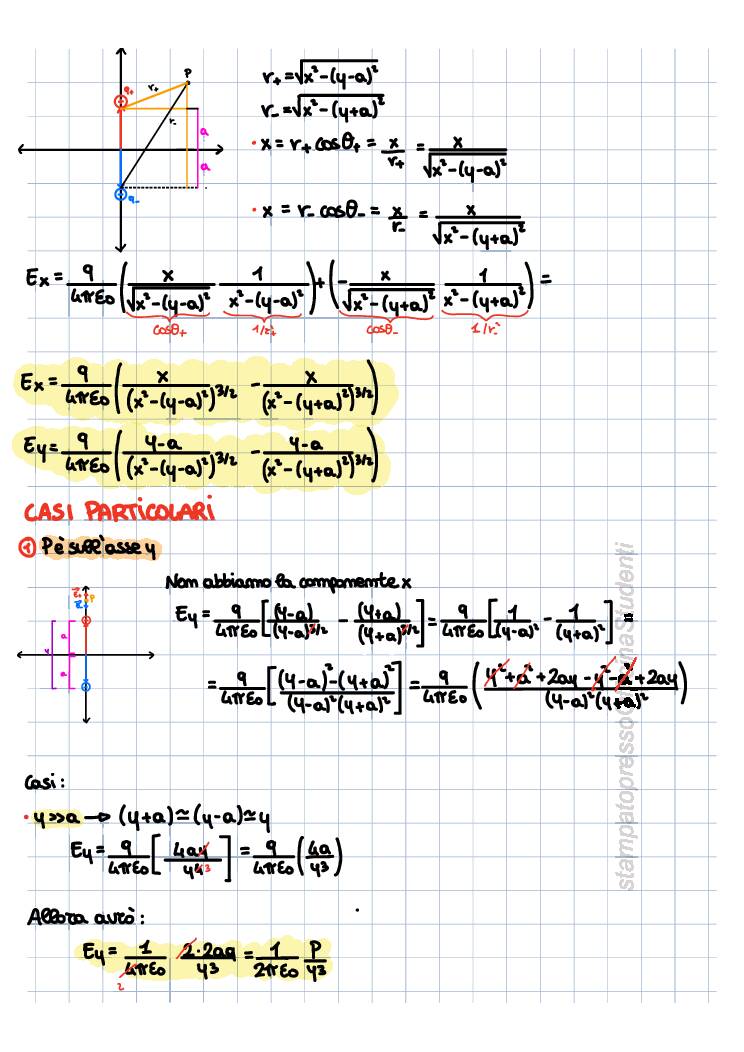 P
r₊
q₊
r₋
a
a
q₋
r₊=√(x²-(y-a)²)
r₋=√(x²-(y+a)²)
• x = r₊ cosθ₊ = x/r₊ = x/√(x²-(y-a)²)
• x = r₋ cosθ₋ = x/r₋ = x/√(x²-(y+a)²)
Ex = q/4πε0 (x/√(x²-(y-a)²) 1/(x²-(y-a)²)) + (-x/√(x²-(y+a)²) 1/(x²-(y+a)²)) =
cosθ₊ 1/r₊² cosθ₋ 1/r₋²
Ex = q/4πε0 (x/(x²-(y-a)²)^3/2 - x/(x²-(y+a)²)^3/2)
Ey = q/4πε0 (y-a/(x²-(y-a)²)^3/2 - y-a/(x²-(y+a)²)^3/2)
CASI PARTICOLARI
① P è sull'asse y
Non abbiamo la componente x
Ey = q/4πε0 [(y-a)/(y-a)^3/2 - (y+a)/(y+a)^3/2] = q/4πε0 [1/(y-a)² - 1/(y+a)²] =
= q/4πε0 [(y-a)²-(y+a)²/(y-a)²(y+a)²] = q/4πε0 (y²+a²+2ay-y²-a²+2ay/(y-a)²(y+a)²)
a
a
Casi:
• y>>a → (y+a)≃(y-a)≃y
Ey = q/4πε0 [4ay/y⁴ 3] = q/4πε0 (4a/y3)
Allora avrò:
Ey = 1/4πε0 2·2aq/y3 = 1/2πε0 P/y3
2